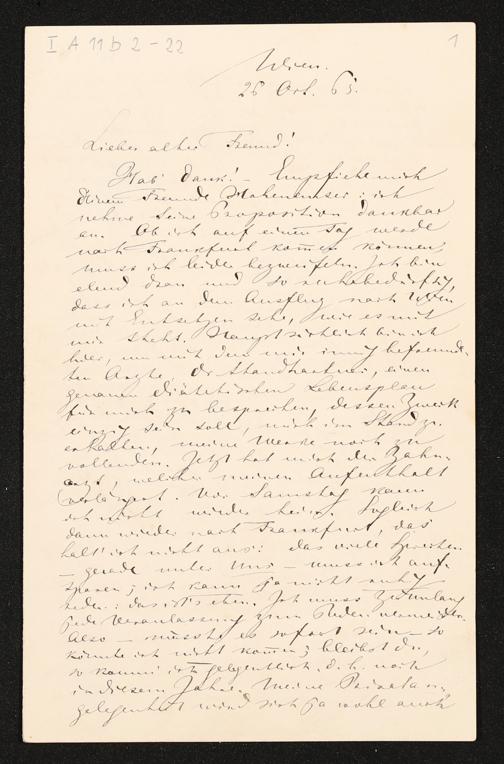 I A 11 b 2-22
1
Wien.
26 Oct. 65.
Lieber alter Freund!
Hab' Dank! – Empfiehl mich
Deinem Freunde Hohenemser: ich
nehme seine Proposition dankbar
an. Ob ich auf einen Tag werde
nach Frankfurt kommen können,
muss ich leider bezweifeln. Ich bin
elend dran und so ruhebedürftig,
dass ich an den Ausflug nach Wien
mit Entsetzen sehe, wie es mit
mir steht. Hauptsächlich bin ich
hier, um mit dem mir innig befreunde-
ten Arzte, Dr. Standhartner, einen
genauen diätetischen Lebensplan
für mich zu besprechen, dessen Zweck
einzig sein soll, mich im Stand zu
erhalten, meine Werke noch zu
vollenden. Jetzt hat mich der Zahn-
arzt, welcher meinen Aufenthalt
verlängert. Vor Samstag kann
ich nicht wieder heim. Sogleich
dann wieder nach Frankfurt, das
halt' ich nicht aus: das viele Sprechen
– gerade unter uns – muss ich auf-
sparen; ich kann ja nicht ruhig
reden: das ist's eben. Ich muss
jede Veranlassung zum Reden vermeiden.
Also – müsste es sofort sein – so
könnte ich nicht kommen; bleibst Du,
so komm' ich gelegentlich, d. h. noch
in diesem Jahre. Meine Privatan-
gelegenheit wird sich ja wohl auch